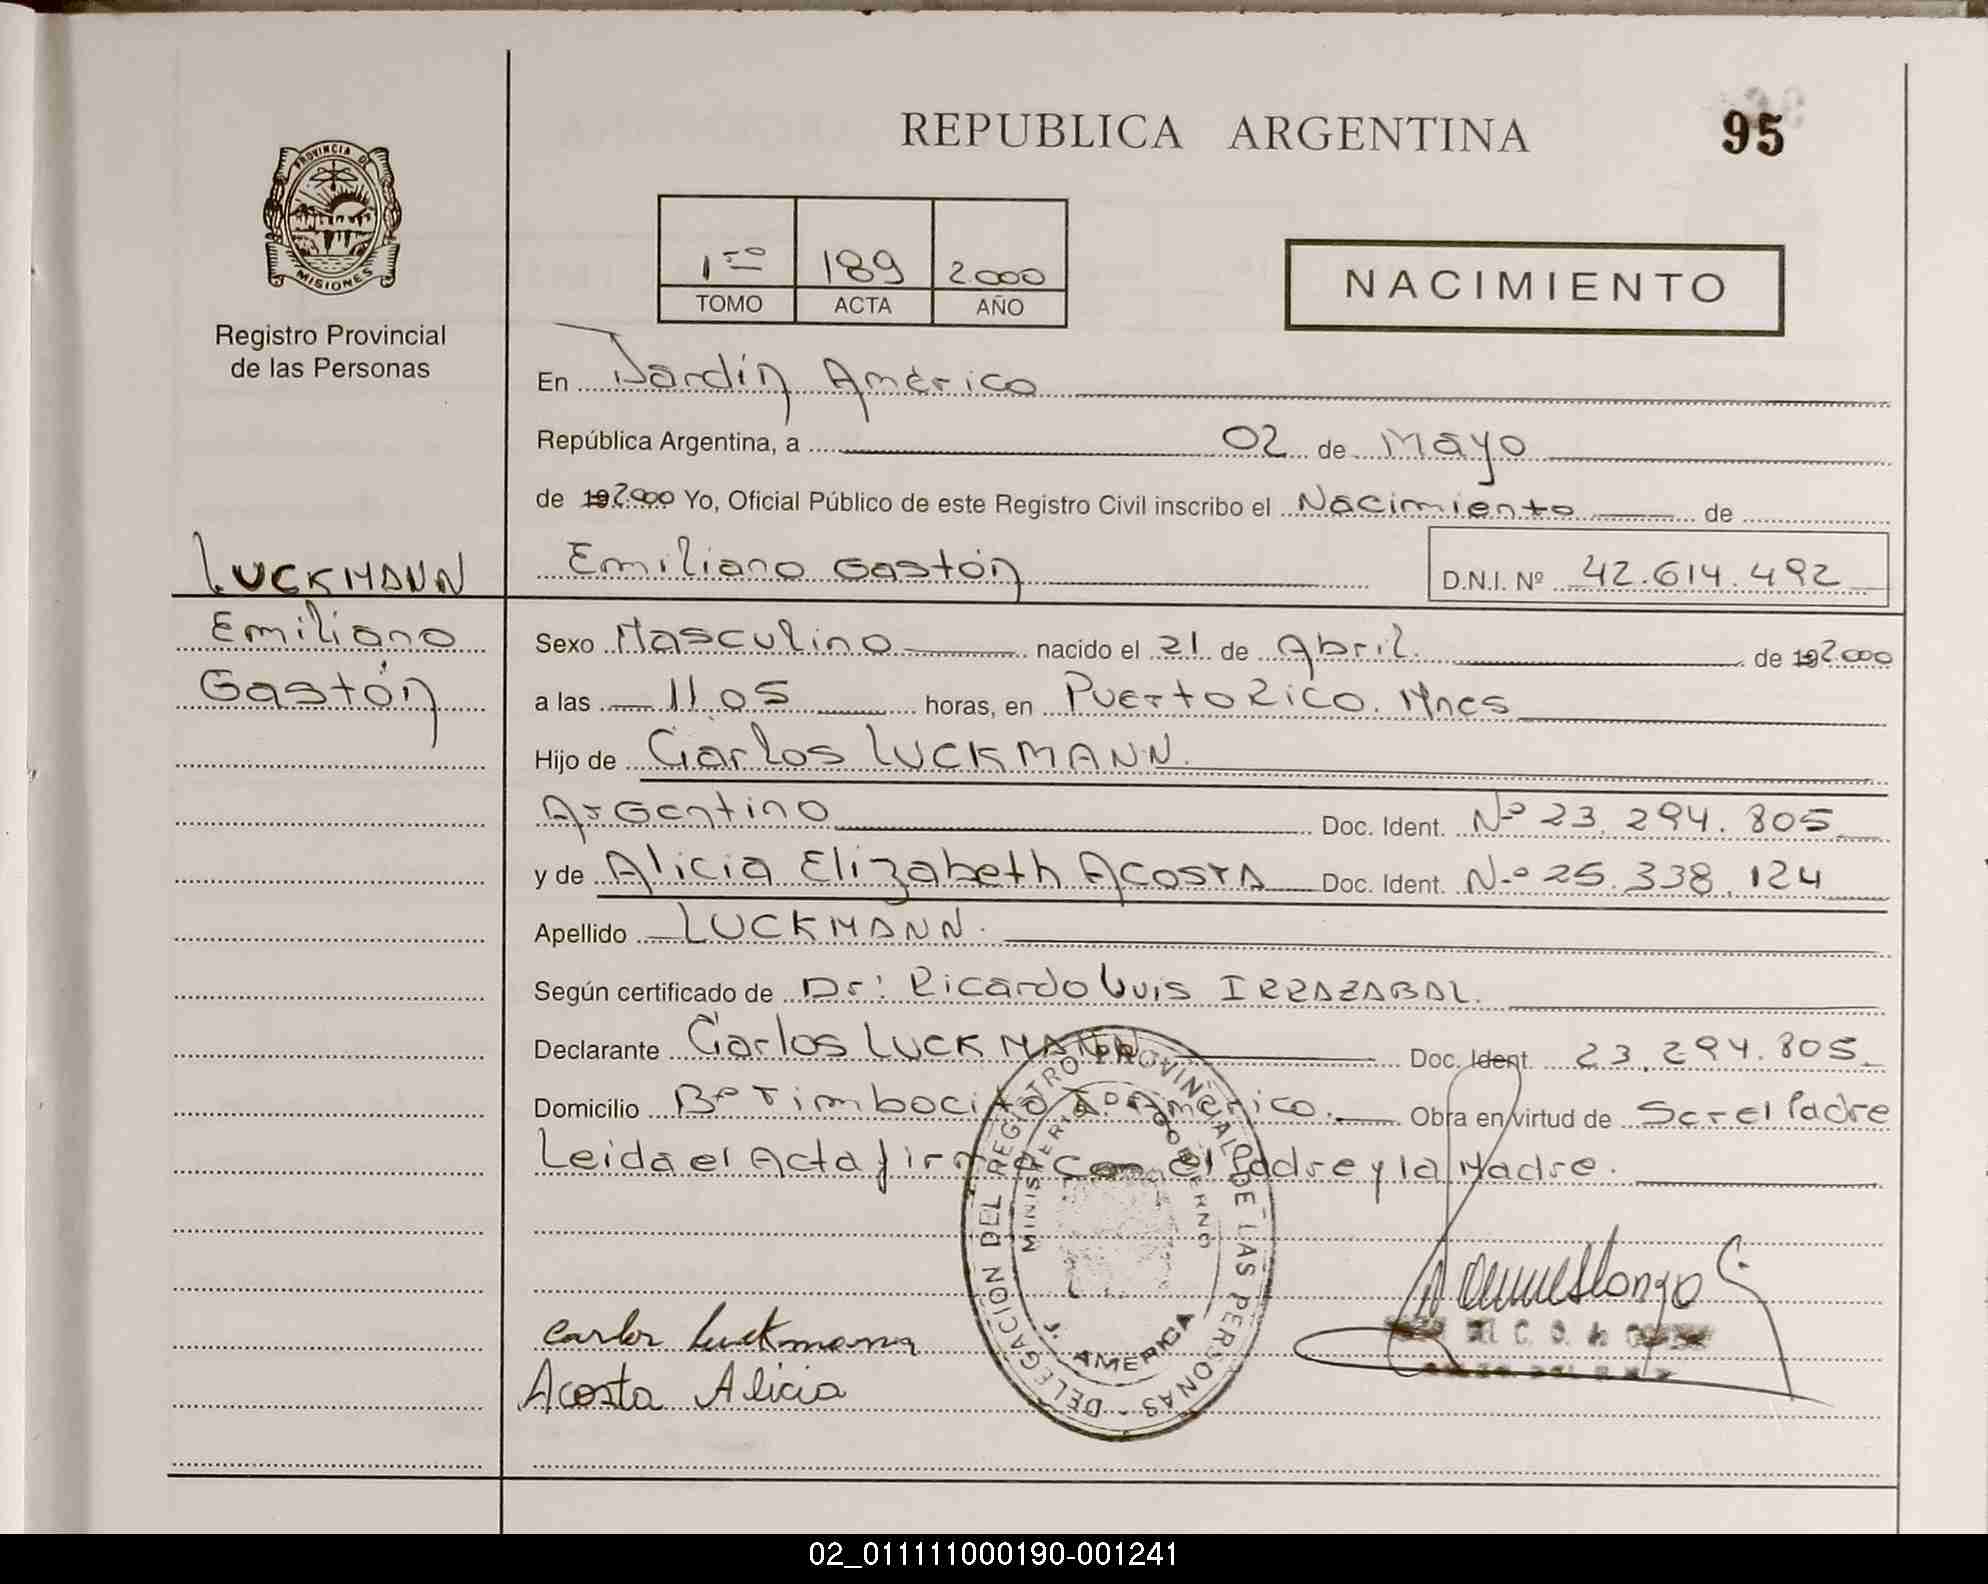 REPUBLICA ARGENTINA
95
PROVINCIA DE
MISIONES
Registro Provincial
de las Personas
1ro 189 2000
TOMO ACTA AÑO
NACIMIENTO
En Jardín América
República Argentina, a 02 de Mayo
de 192000 Yo, Oficial Público de este Registro Civil inscribo el Nacimiento de
LUCKMANN
Emiliano Gastón D.N.I. Nº 42.614.492
Emiliano
Gastón
Sexo Masculino nacido el 21 de Abril de 192000
a las 11,05 horas, en Puerto Rico. Mnes
Hijo de Carlos LUCKMANN.
Argentino Doc. Ident. Nº 23.294.805
y de Alicia Elizabeth ACOSTA Doc. Ident. Nº 25.338.124
Apellido LUCKMANN.
Según certificado de Dr: Ricardo Luis IRRAZABAL.
Declarante Carlos LUCKMANN Doc. Ident. 23.294.805.
Domicilio Bº Timbocito J. América. Obra en virtud de Ser el Padre
Leida el Acta firma con el Padre y la Madre.
DELEGACION DEL REGISTRO PROVINCIAL DE LAS PERSONAS
MINISTERIO DE GOBIERNO
AMERICA
Carlos Luckmann
Acosta Alicia
02_011111000190-001241